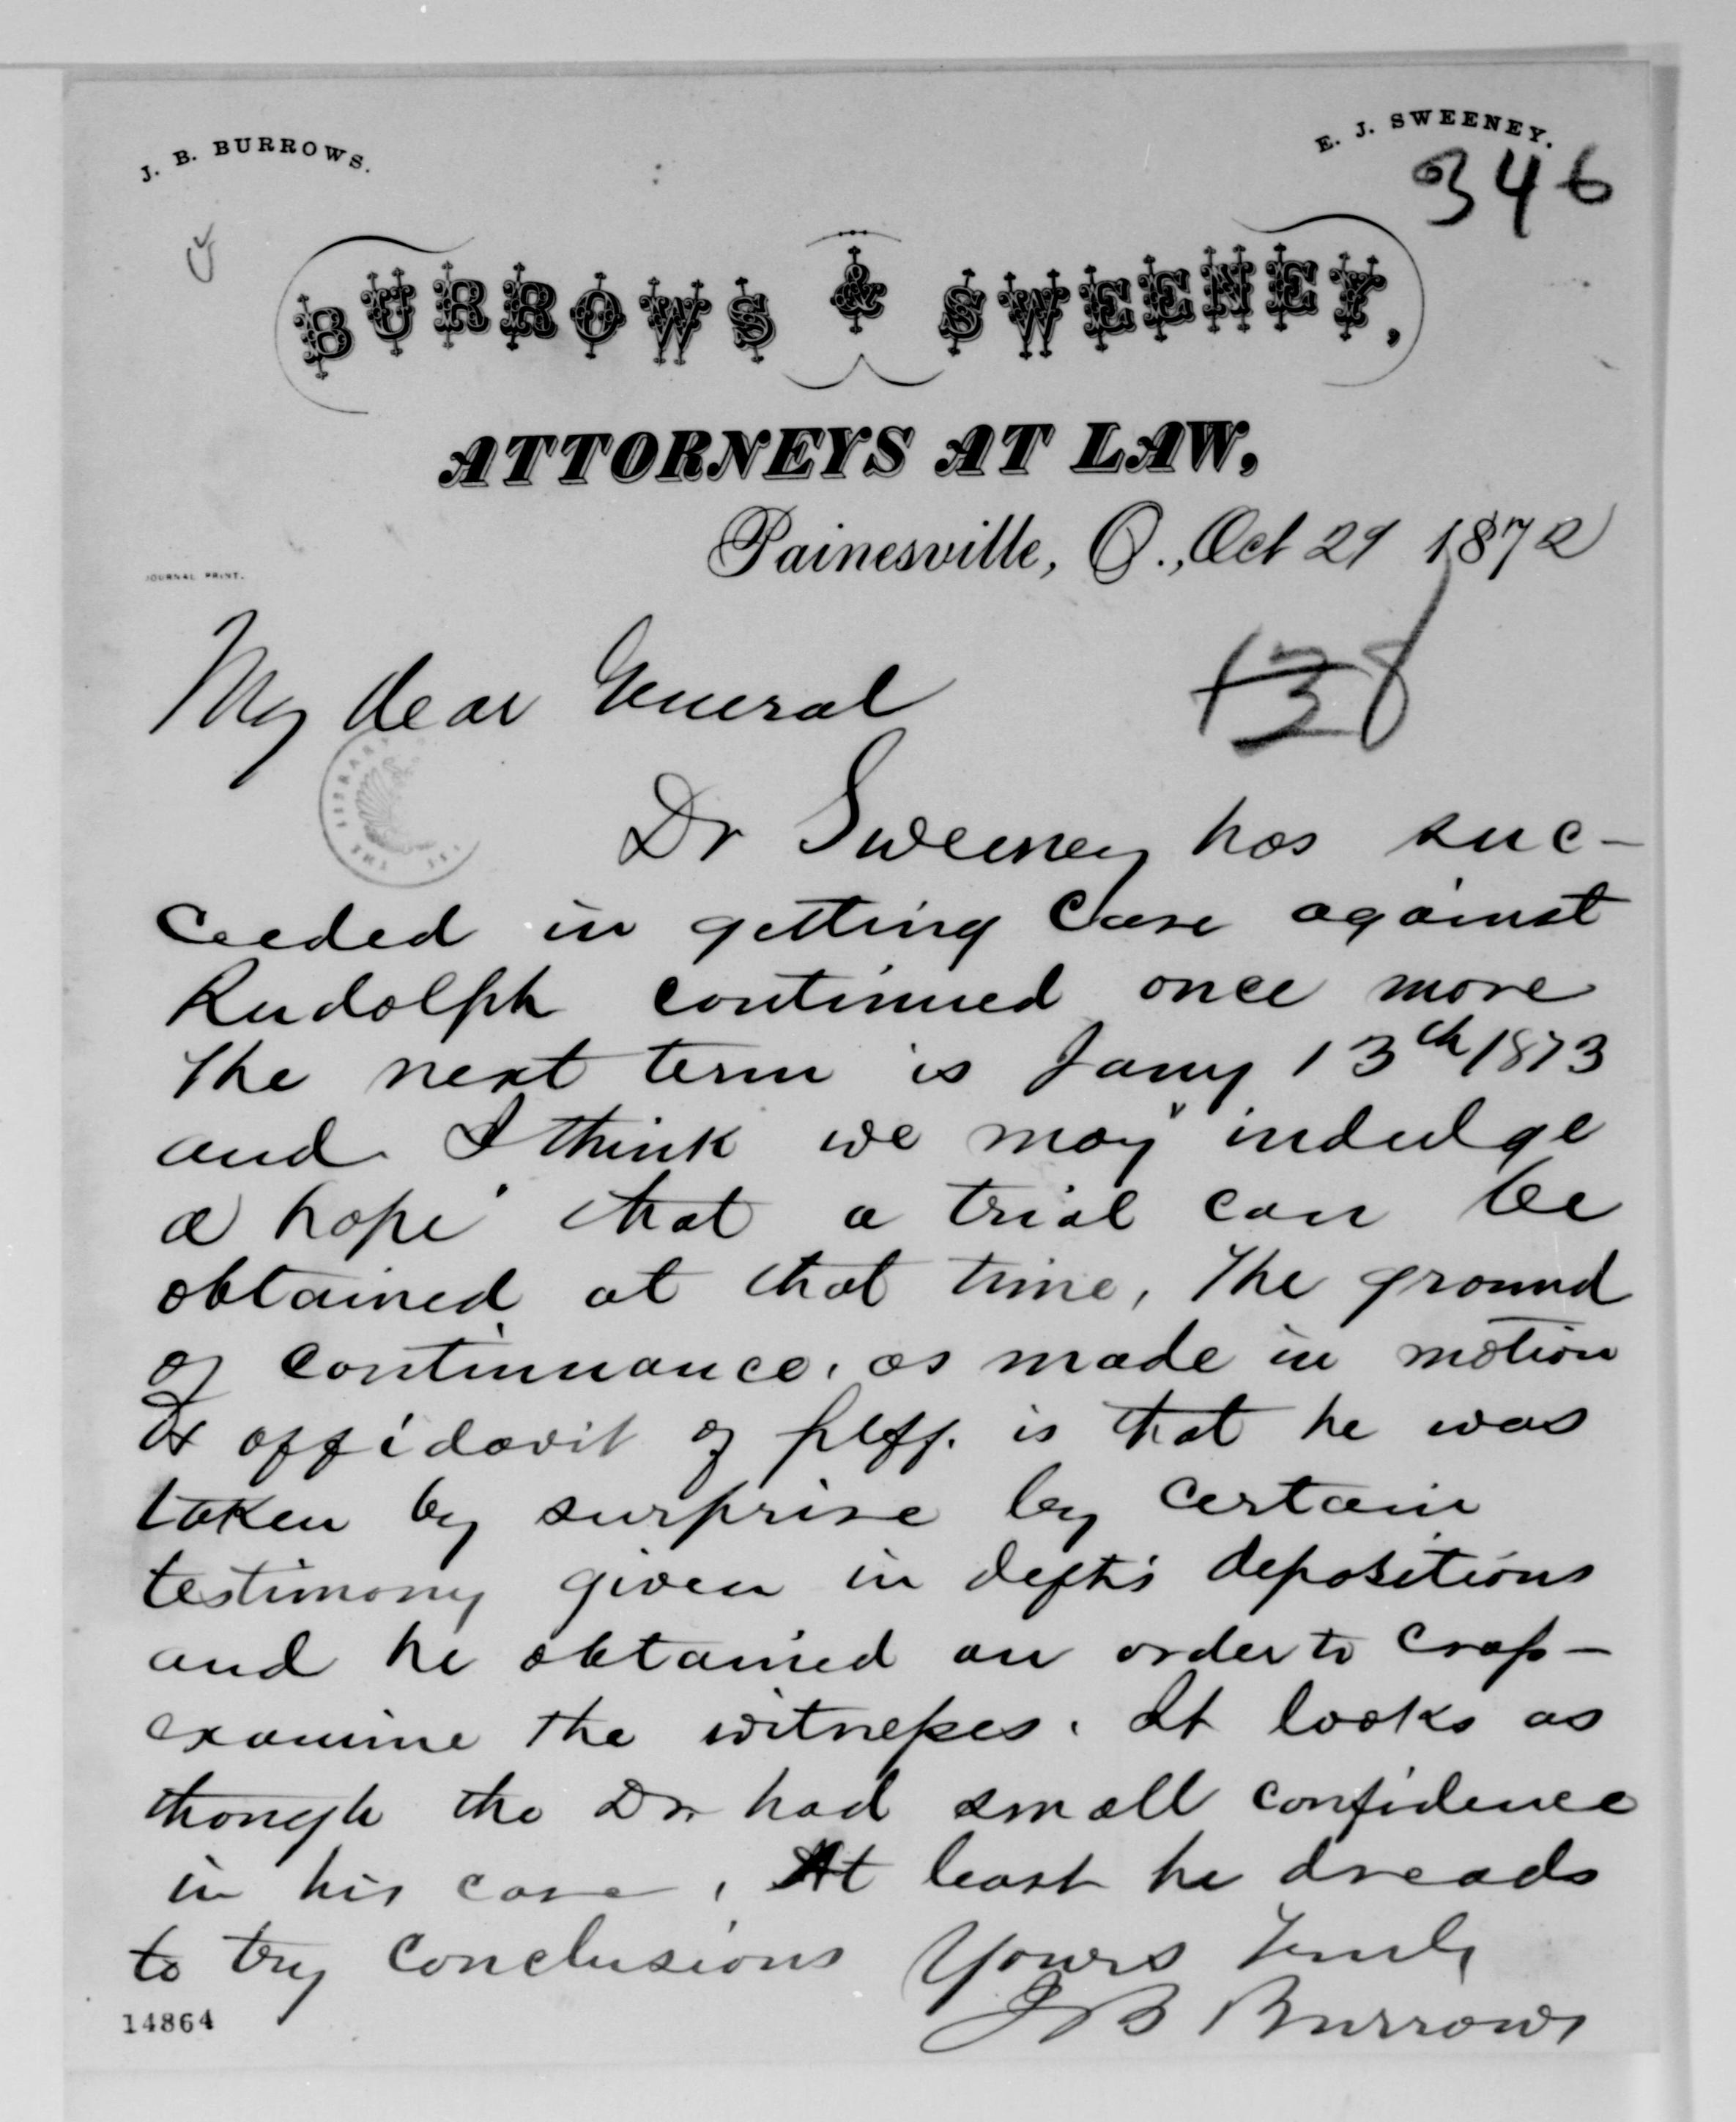 J. B. BURROWS.
E. J. SWEENEY.
346
BURROWS & SWEENEY,
ATTORNEYS AT LAW,
Painesville, O., Oct 29 1872
JOURNAL PRINT.
My dear General
138
Dr Sweeney has suc-
ceeded in getting Case against
Rudolph continued once more
The next term is Jany 13th 1873
and I think we may "indulge
a hope" that a trial can be
obtained at that time, The ground
of continuance, as made in motion
& affidavit of plff. is that he was
taken by surprise by certain
testimony given in defts depositions
and he obtained an order to cross-
examine the witnesses. It looks as
though the Dr. had small confidence
in his case, At least he dreads
to try conclusions Yours Truly
J B Burrows
14864